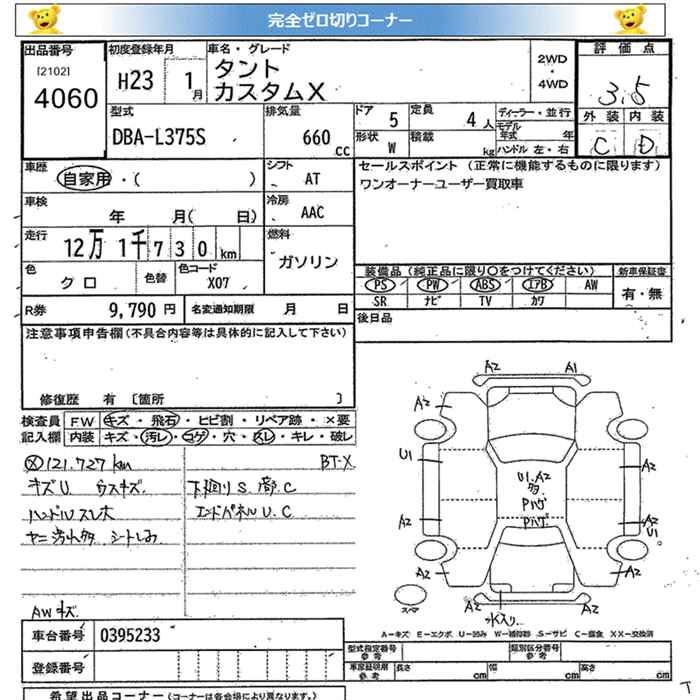 完全ゼロ切りコーナー
出品番号 初度登録年月 車名・グレード
[2102] 4060
H23 1月
タント
カスタムX
2WD・4WD
評価点
3.5
外装 内装
C D
型式 排気量
DBA-L375S 660cc
ドア 5 定員 4人
形状 W 積載 kg
ディーラー・並行
モデル年式 年
ハンドル 左・右
車歴 シフト
自家用・( ) AT
車検 冷房
年 月( 日) AAC
走行 燃料
12万1千730km ガソリン
色 色替 色コード
クロ X07
R券 9,790円 名変通知期限 月 日
セールスポイント (正常に機能するものに限ります)
ワンオーナーユーザー買取車
装備品 (純正品に限り○をつけてください) 新車保証書
PS PW ABS エアB AW 有・無
SR ナビ TV カワ
後日品
注意事項申告欄 (不具合内容等は具体的に記入して下さい)
修復歴 有 [箇所 ]
検査員 FW キズ・飛石・ヒビ割・リペア跡・×要
記入欄 内装 キズ・汚レ・コゲ・穴・スレ・キレ・破レ
ⓧ121.727km BT-X
キズU. ウスキズ. 下廻りS.腐.C
ハンドルスレ大 エンドパネルU.C
ヤニ 汚れ多 シートしみ
AWキズ
A2 A1
A2
U1 A2
U1.A2
多
Pハゲ
Pハゲ
A2 A2
U1
A2 A2
スペア A2 A2
水入り..
A-キズ E-エクボ U-凹み W-補修跡 S-サビ C-腐食 XX-交換済
車台番号 0395233
登録番号
型式指定番号 参考 類別区分番号 参考
車庫証明用 参考 長さ cm 幅 cm 高さ cm
希望出品コーナー (コーナーは各会場により異なります。)